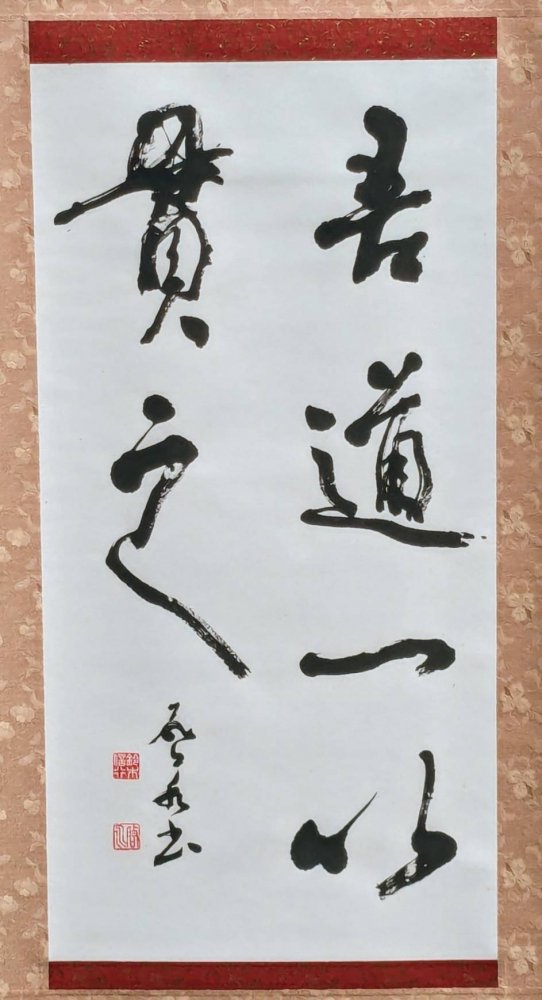 吾道一以
貫之
書